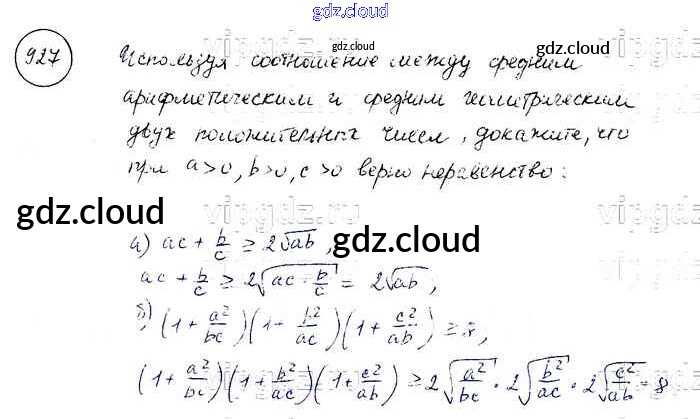 gdz.cloud
927
Используя соотношение между средним
арифметическим и средним геометрическим
двух положительных чисел, докажите, что
при a>0, b>0, c>0 верно неравенство:
gdz.cloud
gdz.cloud
vipgdz.ru
gdz.cloud
gdz.cloud
а) ac + b/c ≥ 2√ab,
ac + b/c ≥ 2√(ac · b/c) = 2√ab,
б) (1 + a²/bc)(1 + b²/ac)(1 + c²/ab) ≥ 8,
(1 + a²/bc)(1 + b²/ac)(1 + c²/ab) ≥ 2√(a²/bc) · 2√(b²/ac) · 2√(c²/ab) = 8